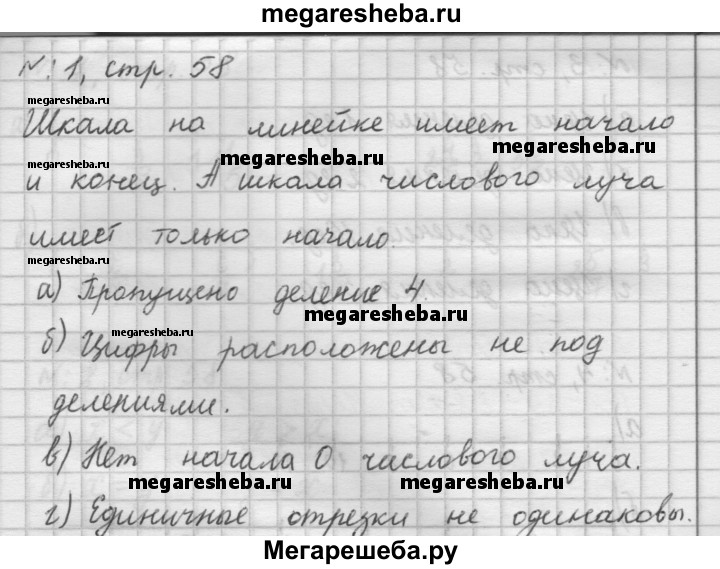 megaresheba.ru
№ 1, стр. 58
megaresheba.ru
Шкала на линейке имеет начало
megaresheba.ru megaresheba.ru megaresheba.ru
и конец. А шкала числового луча
имеет только начало.
megaresheba.ru
а) Пропущено деление 4.
megaresheba.ru
megaresheba.ru
б) Цифры расположены не под
делениями.
в) Нет начала 0 числового луча.
megaresheba.ru megaresheba.ru
г) Единичные отрезки не одинаковы.
Мегарешеба.ру